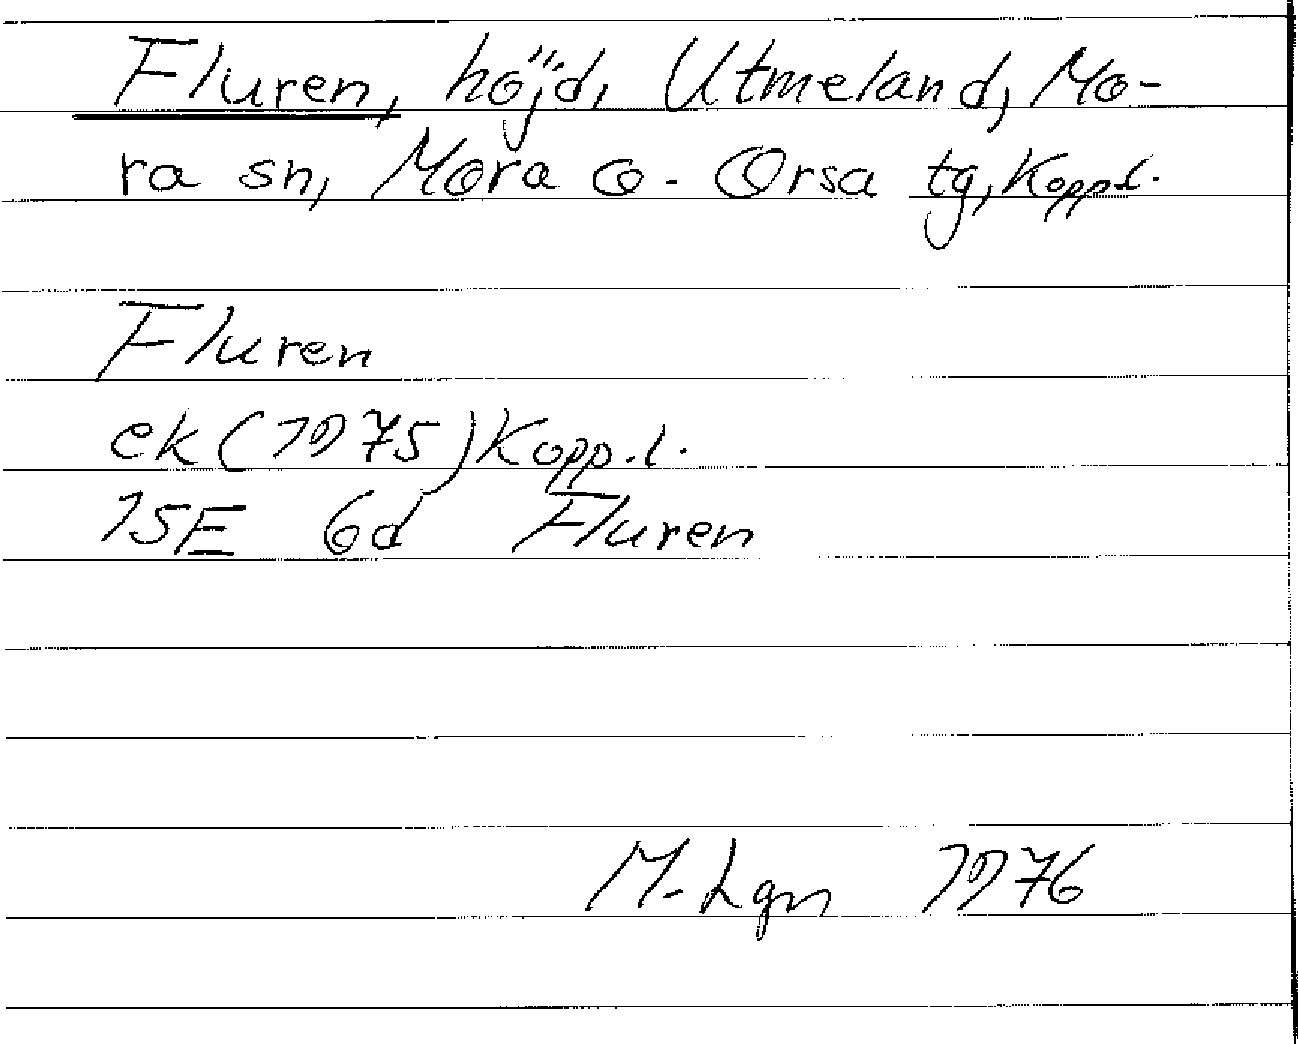 Fluren, höjd, Utmeland, Mo-
ra sn, Mora o. Orsa tg, Kopp.l.
Fluren
ek (1975) Kopp.l.
15E 6d Fluren
M. Lgn 1976